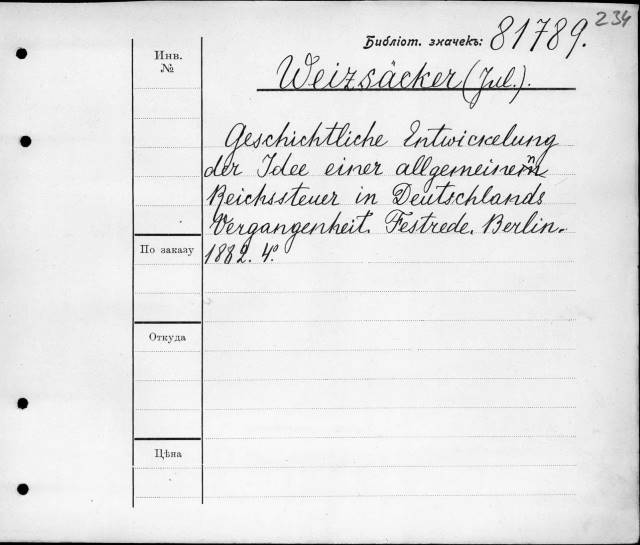 234
Библіот. значекъ: 81789.
Инв.
№
Weizsäcker (Jul.).
Geschichtliche Entwickelung
der Idee einer allgemeinen
Reichssteuer in Deutschlands
Vergangenheit. Festrede. Berlin.
1882. 4°.
По заказу
Откуда
Цѣна